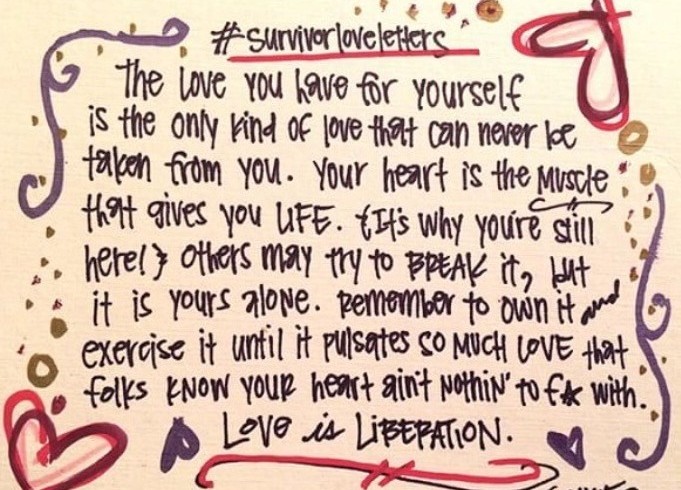 #survivorloveletters
The Love YOU have for yourself
is the only kind of love that can never be
taken from you. Your heart is the Muscle
that gives you LIFE. {It's why you're still
here!} Others may try to BREAK it, but
it is yours alone. Remember to own it and
exercise it until it pulsates so MUCH LOVE that
folks KNOW YOUR heart ain't Nothin' to f*k with.
Love is LIBERATION.